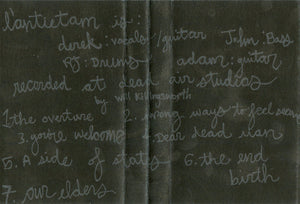 l'antietam is:
derek: vocals/guitar John: Bass
RJ: Drums adam: guitar
recorded at dead air studios
by Will Killingsworth
1. the overture 2. wrong ways to feel seen
3. you're welcome 4. Dear dead man
5. A side of states 6. the end
birth
7. our elders